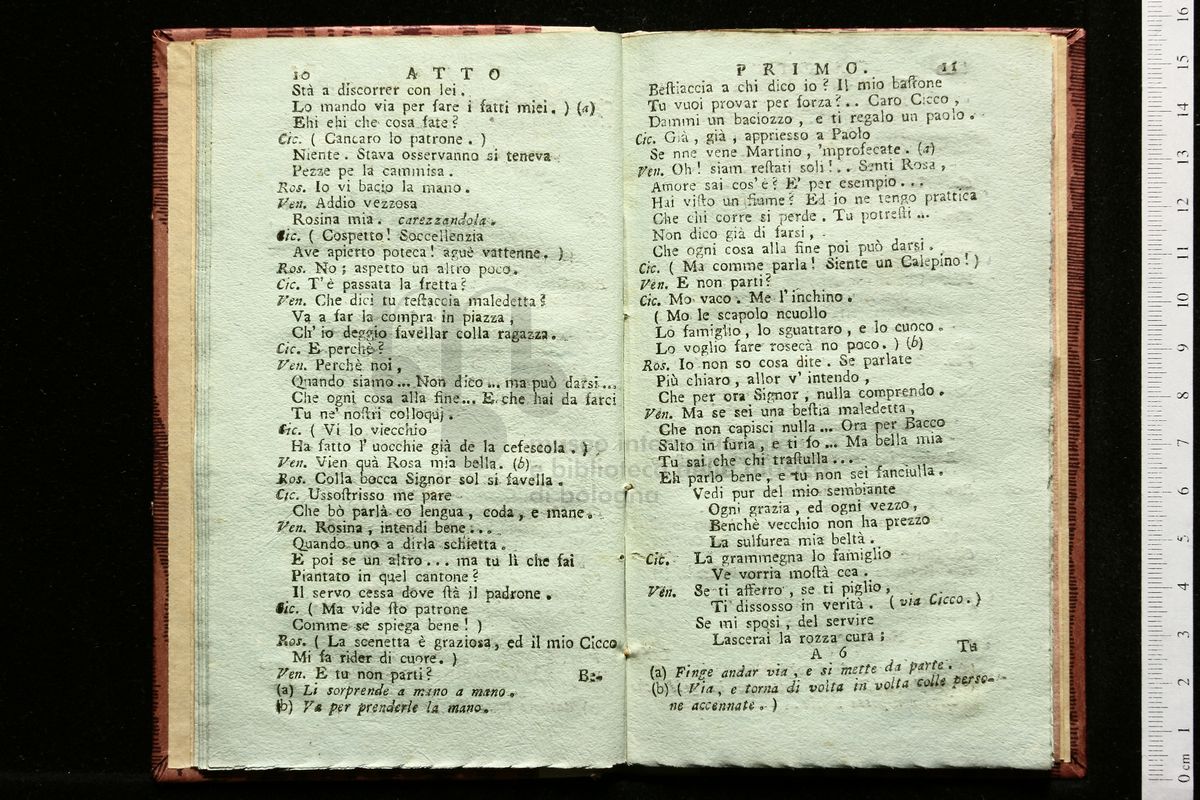 10 ATTO
Stà a discorrer con lei.
Lo mando via per fare i fatti miei. ) (a)
Ehi ehi che cosa fate?
Cic. ( Cancaro lo patrone. )
Niente. Stava osservanno si teneva
Pezze pe la cammisa.
Ros. Io vi bacio la mano.
Ven. Addio vezzosa
Rosina mia. carezzandola.
Cic. ( Cospetto! Soccellenzia
Ave apierto poteca! aguè vattenne. )
Ros. No; aspetto un altro poco.
Cic. T'è passata la fretta?
Ven. Che dici tu testaccia maledetta?
Va a far la compra in piazza,
Ch' io deggio favellar colla ragazza.
Cic. E perchè?
Ven. Perchè noi,
Quando siamo... Non dico... ma può darsi...
Che ogni cosa alla fine... E che hai da farci
Tu ne' nostri colloquj.
Cic. ( Vi lo viecchio
Ha fatto l' uocchie già de la cefescola. )
Ven. Vien quà Rosa mia bella. (b)
Ros. Colla bocca Signor sol si favella.
Cic. Ussostrisso me pare
Che bò parlà co lengua, coda, e mane.
Ven. Rosina, intendi bene...
Quando uno a dirla schietta.
E poi se un altro... ma tu lì che fai
Piantato in quel cantone?
Il servo cessa dove stà il padrone.
Cic. ( Ma vide sto patrone
Comme se spiega bene! )
Ros. ( La scenetta è graziosa, ed il mio Cicco
Mi fa rider di cuore. )
Ven. E tu non parti? Be-
(a) Li sorprende a mano a mano.
(b) Va per prenderle la mano.
PRIMO. 11
Bestiaccia a chi dico io? Il mio bastone
Tu vuoi provar per forza?.. Caro Cicco,
Dammi un baciozzo, e ti regalo un paolo.
Cic. Già, già, appriesso a Paolo
Se nne vene Martino, 'mprofecate. (a)
Ven. Oh! siam restati soli!.. Senti Rosa,
Amore sai cos'è? E' per esempio...
Hai visto un fiume? Ed io ne tengo prattica
Che chi corre si perde. Tu potresti...
Non dico già di farsi,
Che ogni cosa alla fine poi può darsi.
Cic. ( Ma comme parla! Siente un Calepino!)
Ven. E non parti?
Cic. Mo vaco. Me l'inchino.
( Mo le scapolo ncuollo
Lo famiglio, lo sguattaro, e lo cuoco.
Lo voglio fare rosecà no poco. ) (b)
Ros. Io non so cosa dite. Se parlate
Più chiaro, allor v' intendo,
Che per ora Signor, nulla comprendo.
Ven. Ma se sei una bestia maledetta,
Che non capisci nulla... Ora per Bacco
Salto in furia, e ti fo... Ma bella mia
Tu sai che chi trastulla...
Eh parlo bene, e tu non sei fanciulla.
Vedi pur del mio sembiante
Ogni grazia, ed ogni vezzo,
Benchè vecchio non ha prezzo
La sulfurea mia beltà.
Cic. La grammegna lo famiglio
Ve vorria mostà cca.
Ven. Se ti afferro, se ti piglio,
Ti dissosso in verità. (via Cicco.)
Se mi sposi, del servire
Lascerai la rozza cura;
A 6 Tu
(a) Finge andar via, e si mette da parte.
(b) ( Via, e torna di volta in volta colle perso-
ne accennate. )
di bologna
0 cm 1 2 3 4 5 6 7 8 9 10 11 12 13 14 15 16